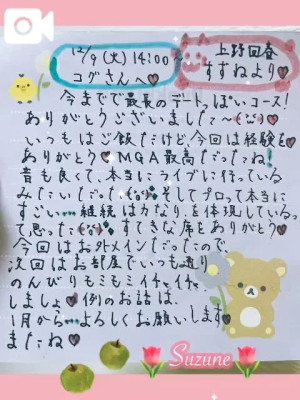 12/9(火)14:00~
コグさんへ♥
上野回春
すずねより♥
今までで最長のデートっぽいコース!
ありがとうございました〜♥
いつもはご飯だけど今回は経験を
ありがとう♥MGA最高だったね!
音も良くて、本当にライブに行っている
みたいだった そしてプロって本当に
すごい…継続は力なり、を体現している
って思った すてきな席をありがとう♥
今回はお外メインだったので、
次回はお部屋でいつも通り
のんびりもミもミイチャイチャ
しましょ♥例のお話は、
1月から…よろしくお願いします♥
またね♥
Suzune